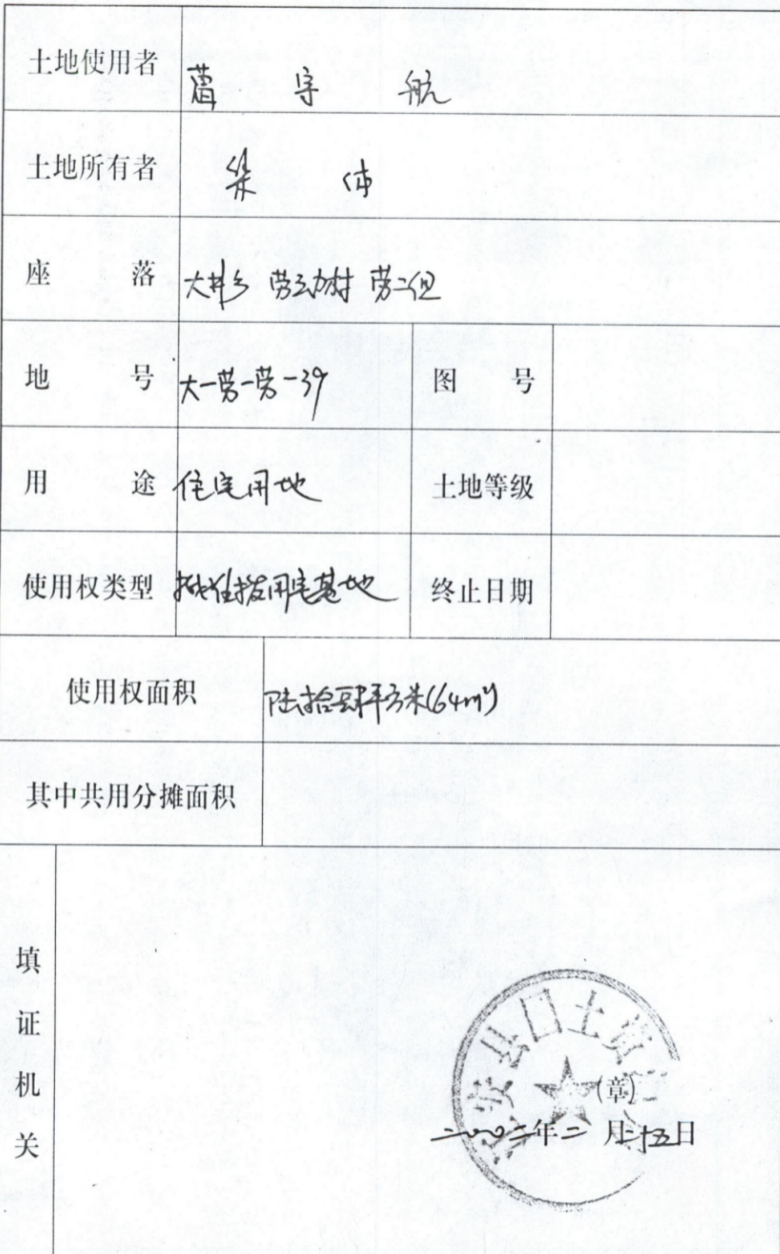 土地使用者 宇航
土地所有者 集体
座落 大井乡 劳动村 劳二组
地号 大-劳-劳-39 图号
用途 住宅用地 土地等级
使用权类型 宅基地 终止日期
使用权面积 陆拾肆平方米(64m²)
其中共用分摊面积
填证机关
安县国土资
(章)
二〇〇二年二月二十五日